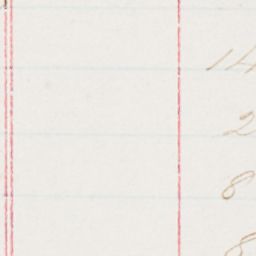 14
2
8
8